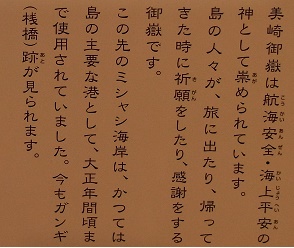 美崎御嶽は航海安全・海上平安の
神として崇められています。
島の人々が、旅に出たり、帰って
きた時に祈願をしたり、感謝をする
御嶽です。
この先のミシャシ海岸は、かつては
島の主要な港として、大正年間頃ま
で使用されていました。今もガンギ
（桟橋）跡が見られます。